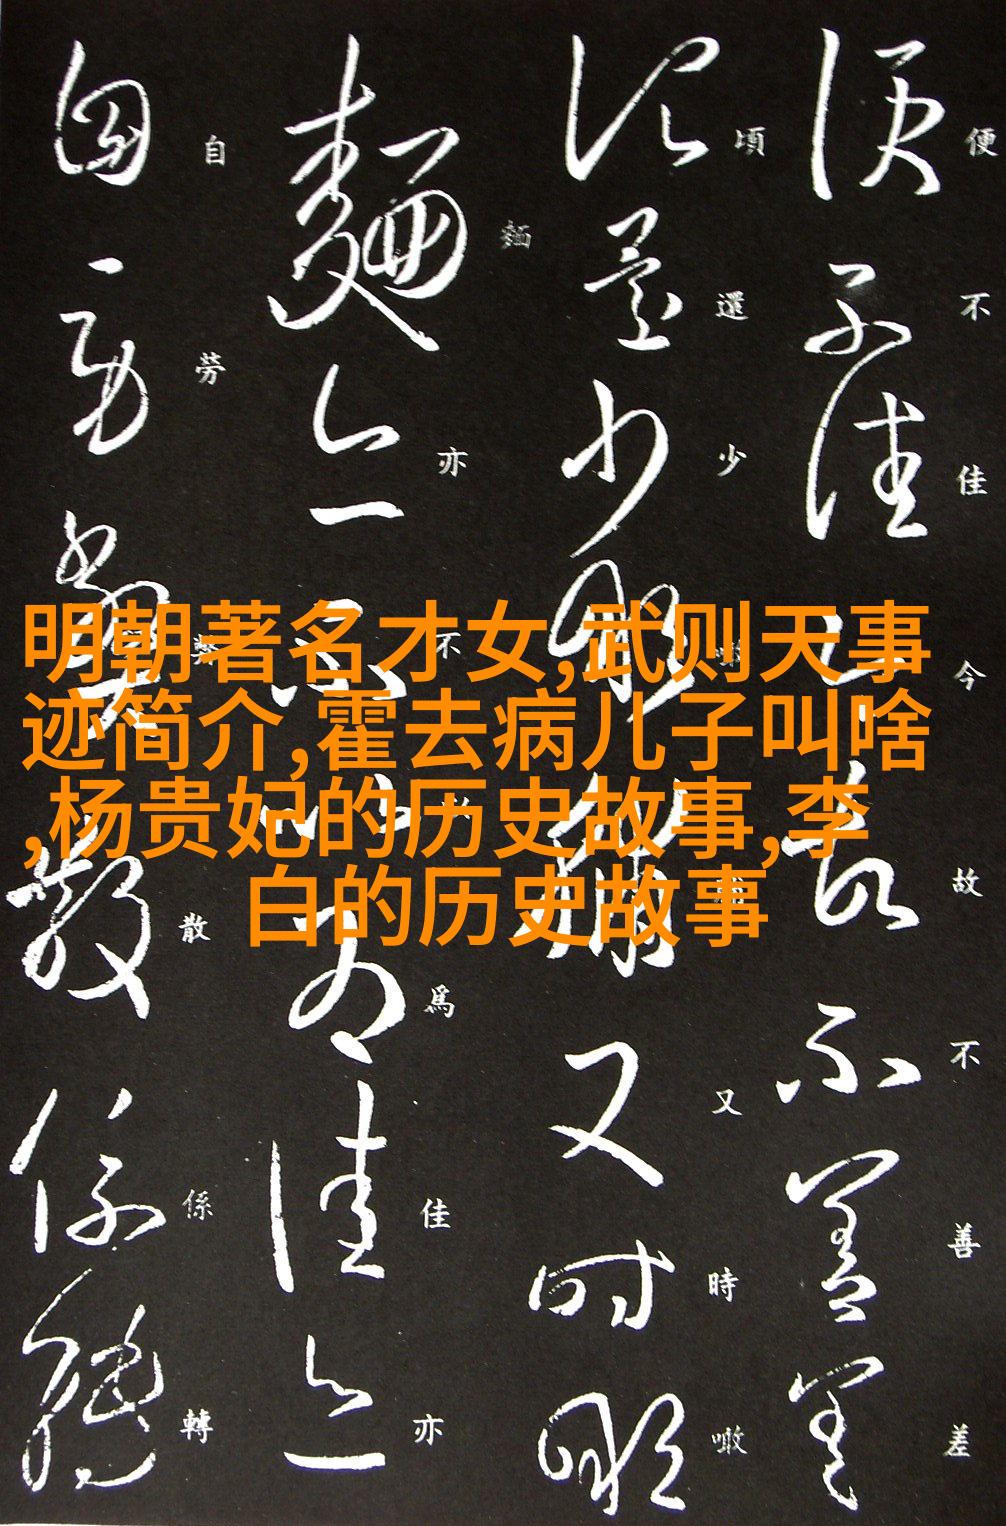 明朝著名才女,武则天事
迹简介,霍去病儿子叫啥
,杨贵妃的历史故事,李
白的历史故事
便不佳今故不善差
頃還少噉脯又時噉
麵亦不以爲佳亦
自勞弊散係轉